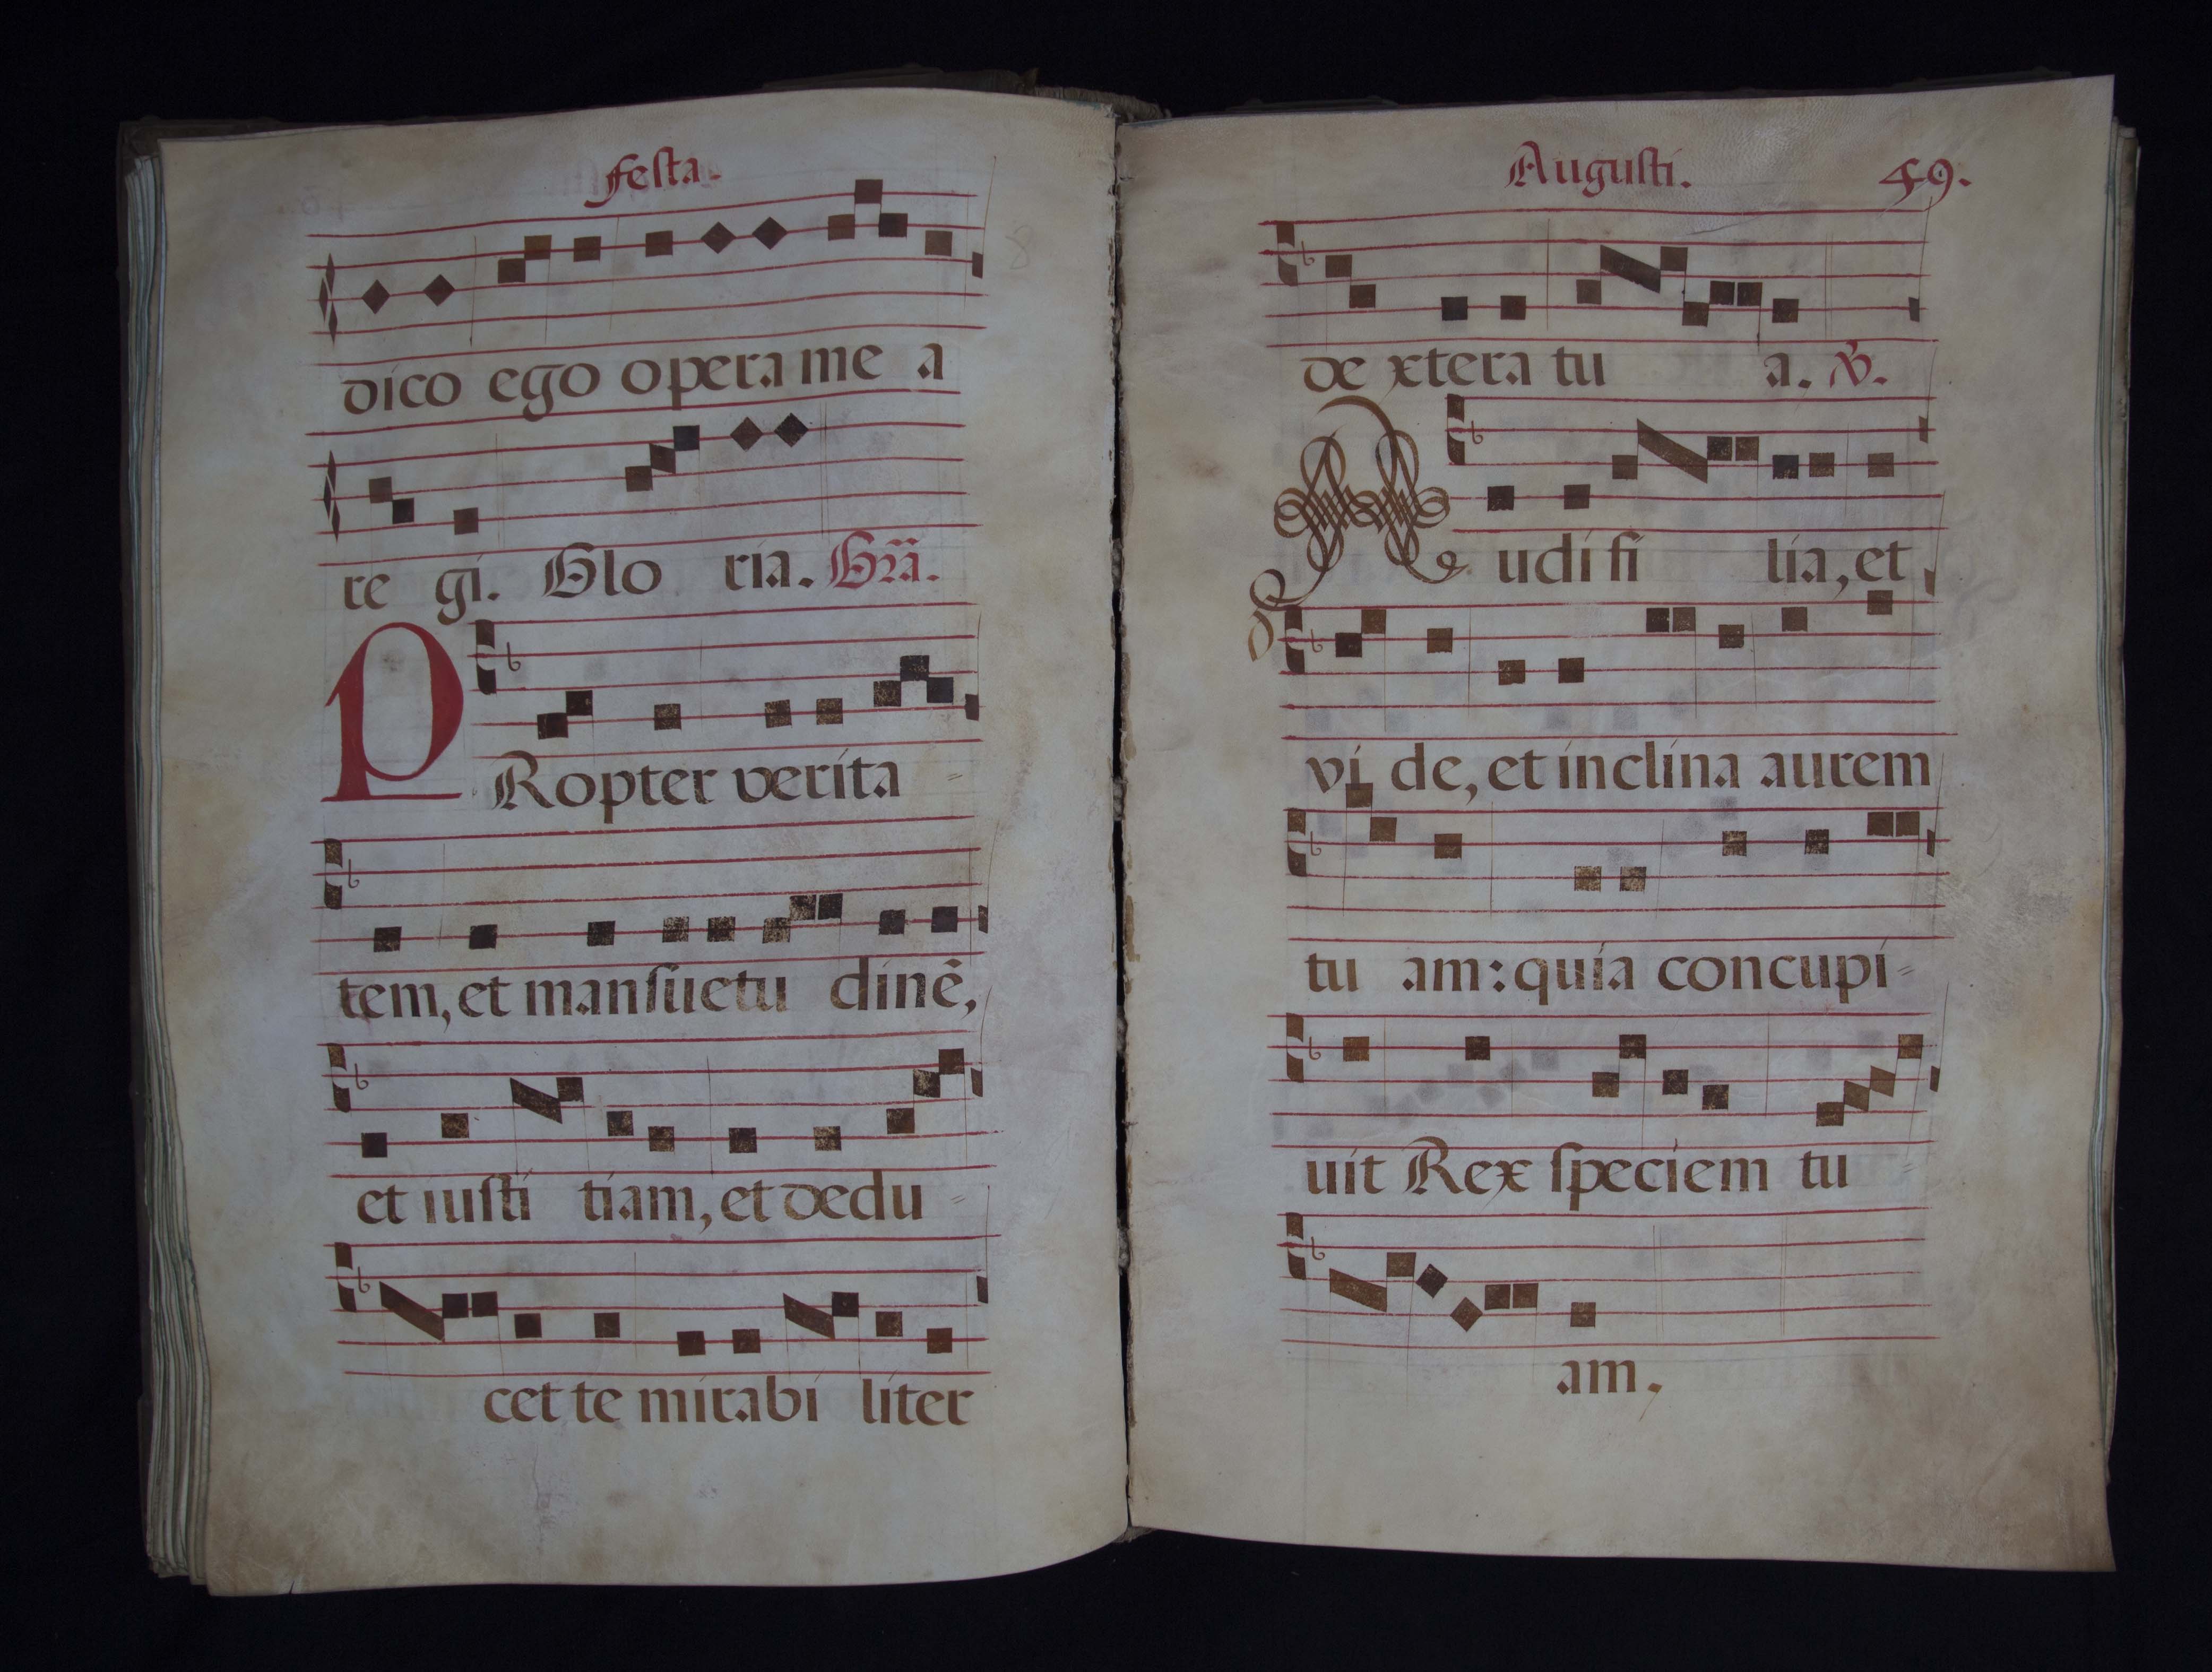 Festa.
dico ego opera me a
re gi. Glo ria. Gra.
PRopter verita =
tem, et mansuetu dinē,
et iusti tiam, et dedu =
cet te mirabi liter
Augusti. 49.
de xtera tu a. ꝟ.
Audi fi lia, et
vi de, et inclina aurem
tu am: quia concupi =
uit Rex speciem tu =
am.